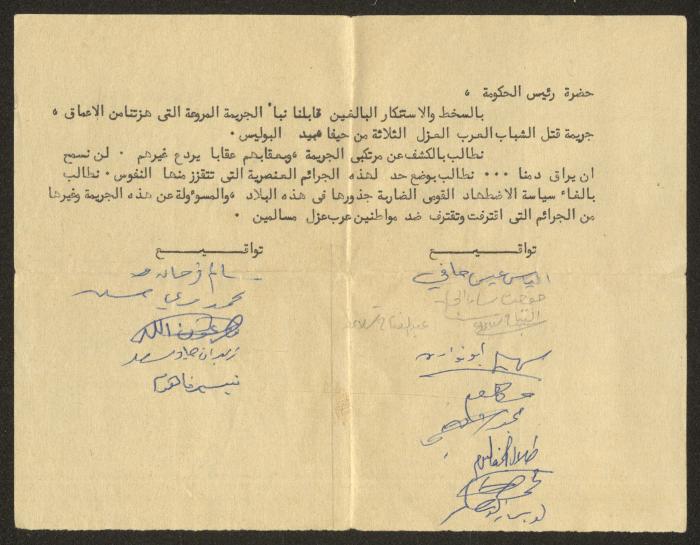 حضرة رئيس الحكومة ،
بالسخط والاستنكار البالغين قابلنا نبأ الجريمة المروعة التى هزتنامن الاعماق ،
جريمة قتل الشباب العرب العزل الثلاثة من حيفا بيد البوليس .
نطالب بالكشف عن مرتكبى الجريمة وبعقابهم عقابا يردع غيرهم . لن نسمح
ان يراق دمنا ... نطالب بوضع حد لهذه الجرائم العنصرية التى تتقزز منها النفوس . نطالب
بالغاء سياسة الاضطهاد القومى الضاربة جذورها فى هذه البلاد والمسؤولة عن هذه الجريمة وغيرها
من الجرائم التى اقترفت وتقترف ضد مواطنين عرب عزل مسالمين .
تواقيـــع
الياس عيسى
عبد الفتاح
سهيل ابو نوارة
محمد
طلال
تواقيـــع
سالم فرحات
محمد
تيسير فاهوم